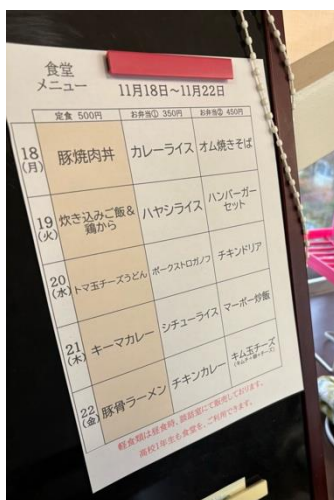 食堂
メニュー
11月18日～11月22日
定食 500円 お弁当① 350円 お弁当② 450円
18(月) 豚焼肉丼 カレーライス オム焼きそば
19(火) 炊き込みご飯&鶏から ハヤシライス ハンバーガーセット
20(水) トマ玉チーズうどん ポークストロガノフ チキンドリア
21(木) キーマカレー シチューライス マーボー炒飯
22(金) 豚骨ラーメン チキンカレー キム玉チーズ
軽食類は昼食時、調理室にて販売しております。
高校1年生も食堂を、ご利用できます。